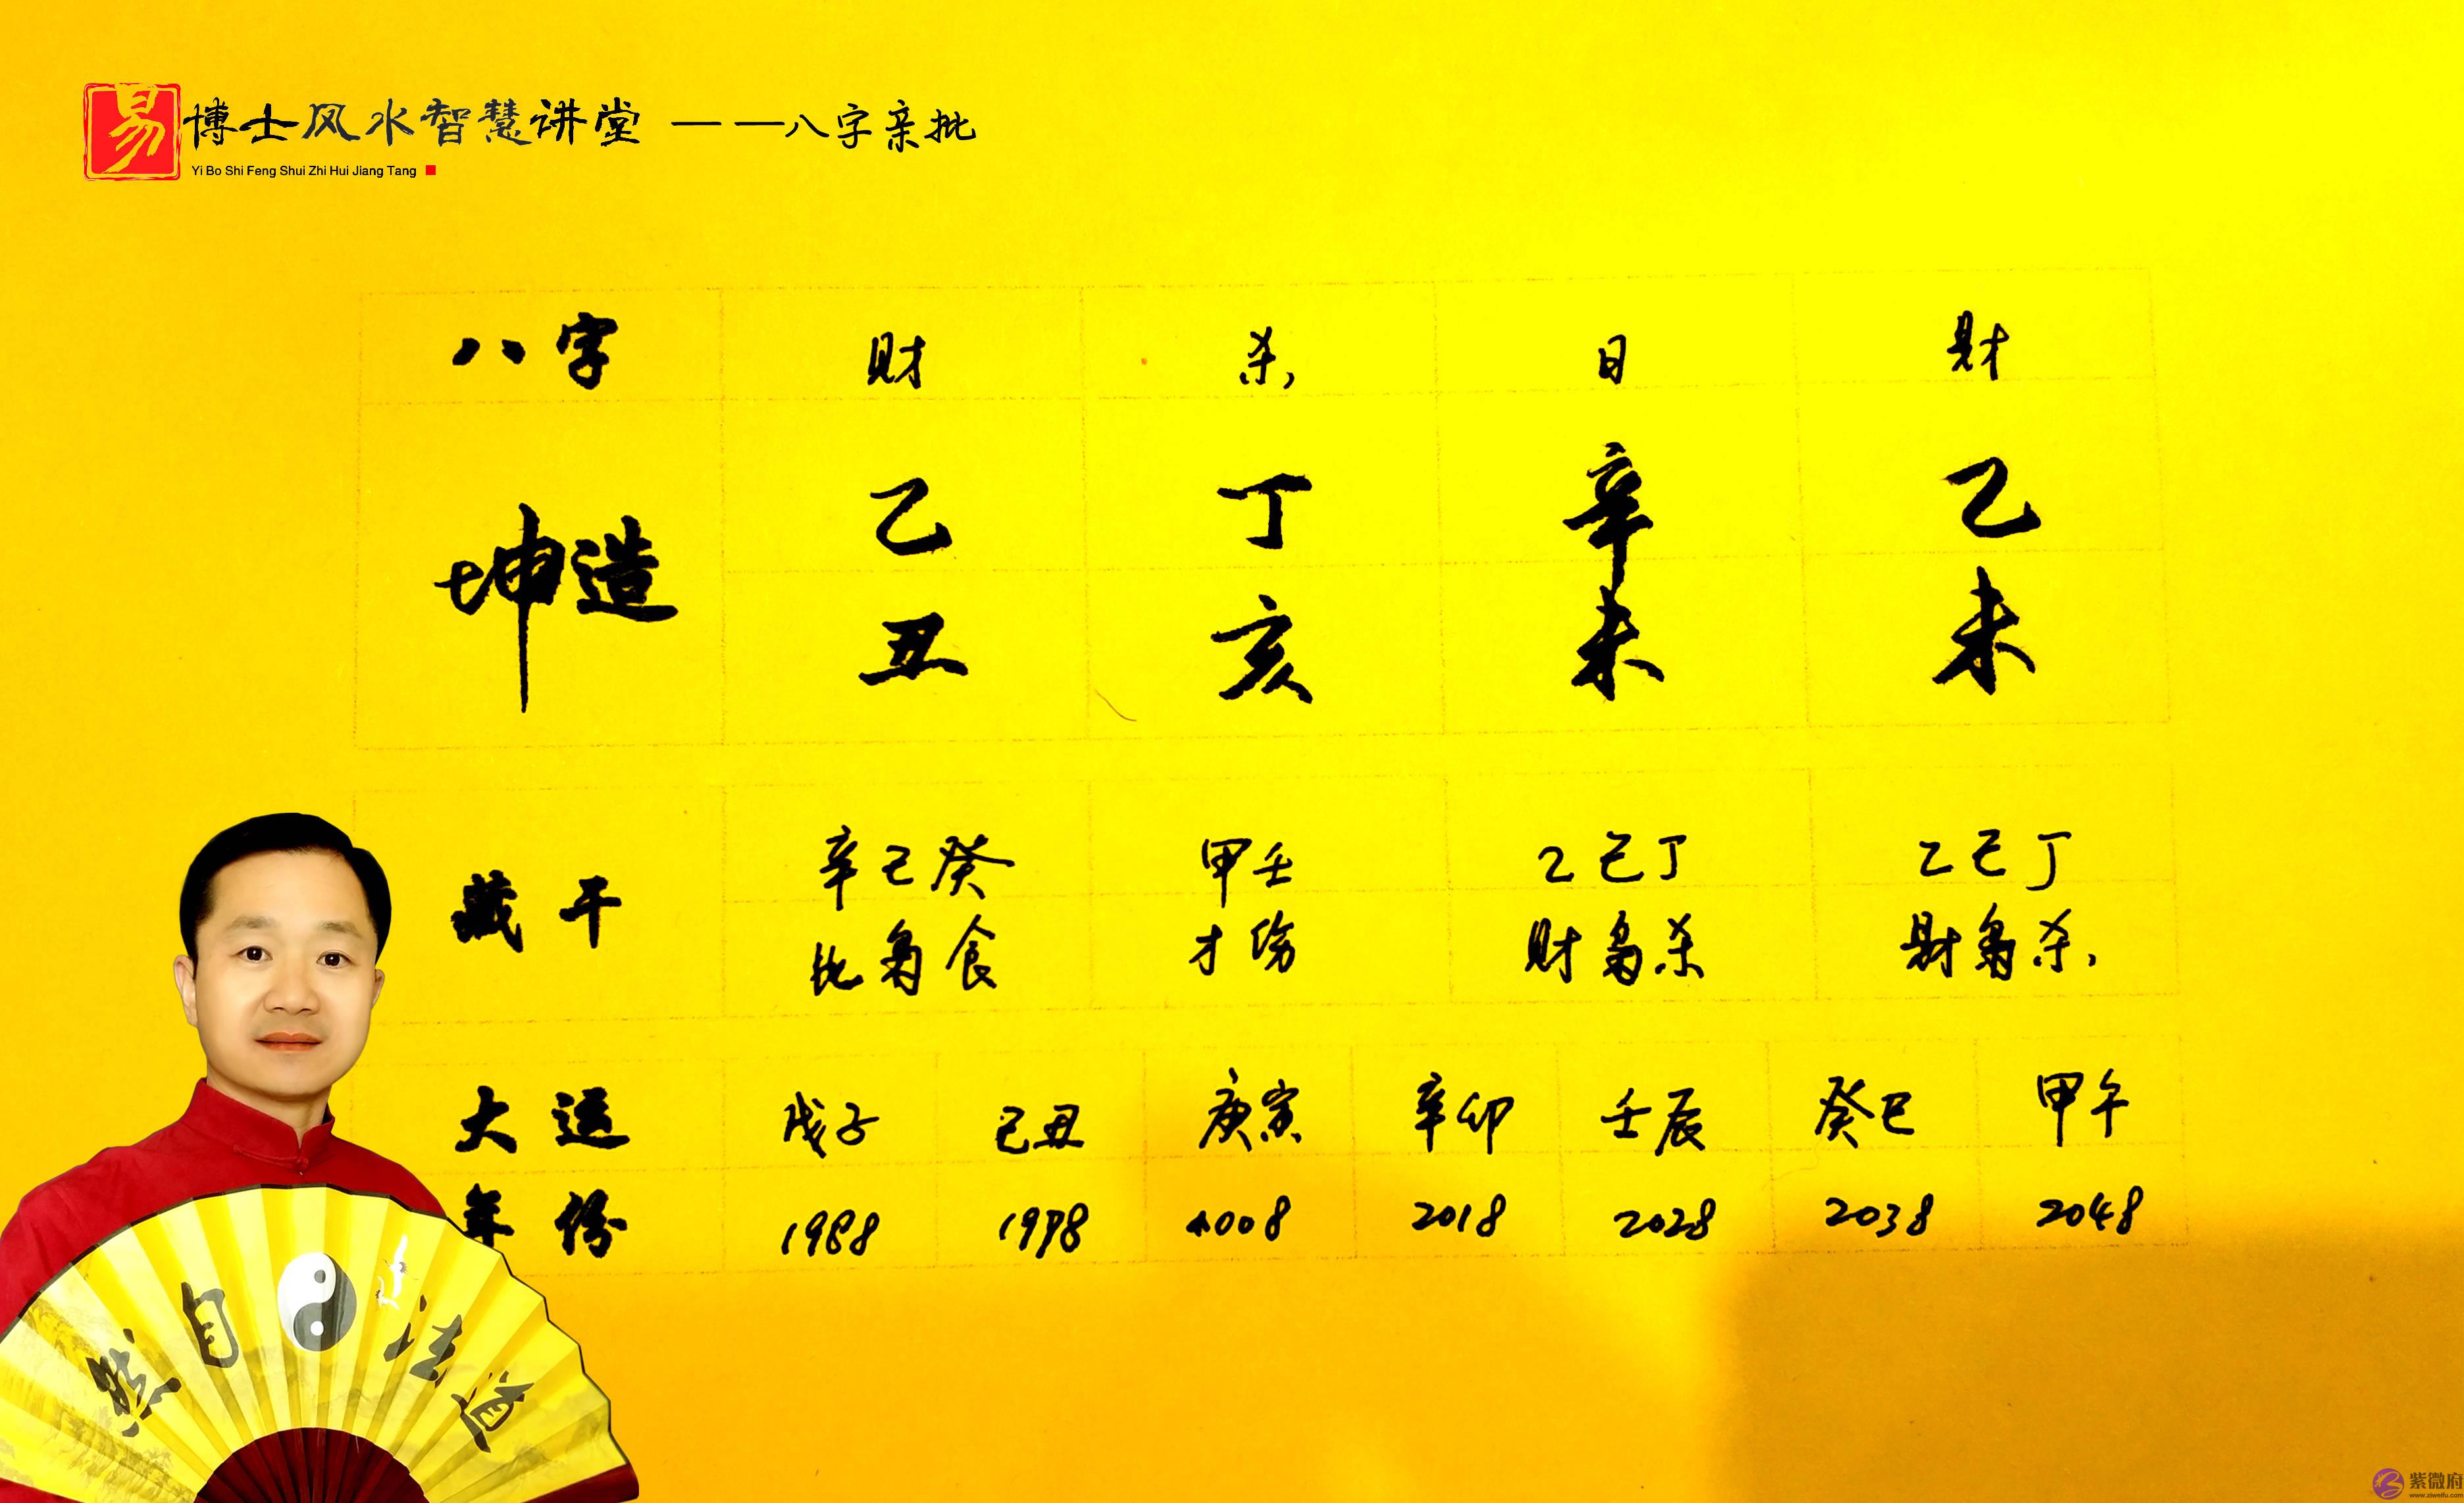 易博士风水智慧讲堂 ——八字亲批
Yi Bo Shi Feng Shui Zhi Hui Jiang Tang
八字 财 杀 日 财
坤造
乙 丁 辛 乙
丑 亥 未 未
藏干
辛己癸 甲壬 乙己丁 乙己丁
比枭食 才伤 财枭杀 财枭杀
大运 戊子 己丑 庚寅 辛卯 壬辰 癸巳 甲午
年份 1988 1998 2008 2018 2028 2038 2048
道法自然
紫微府
www.ziweifu.com